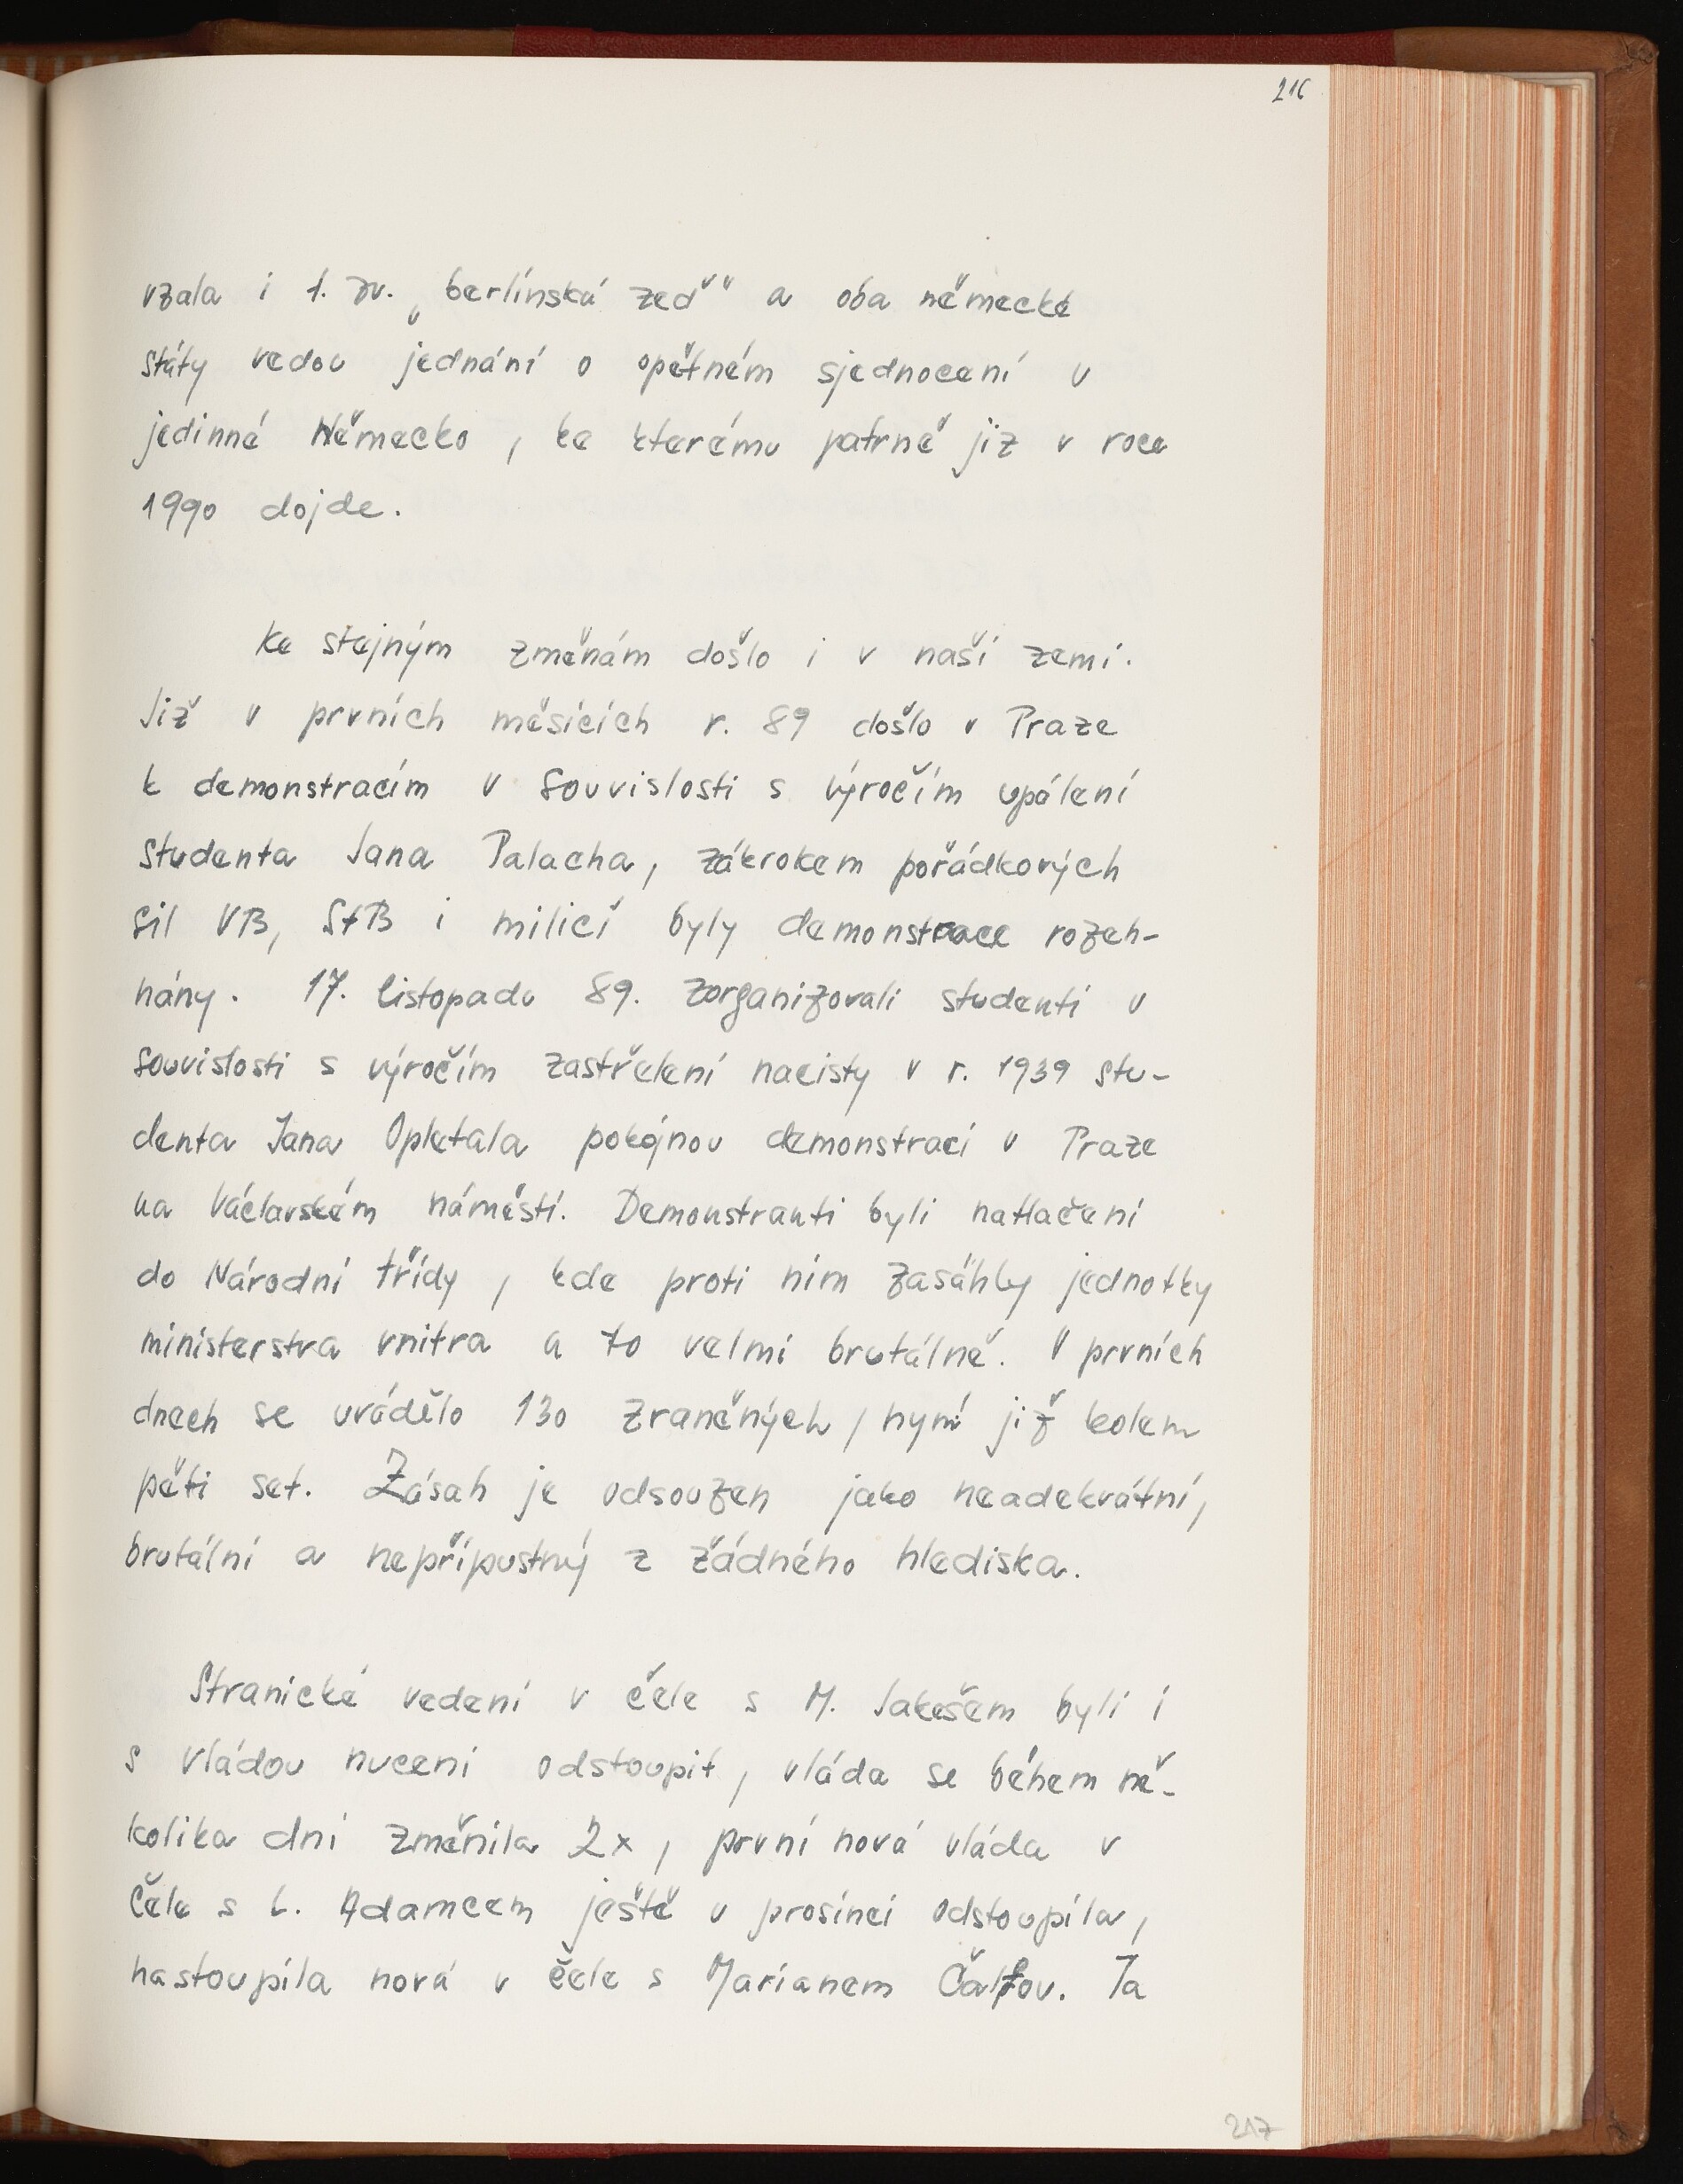 216
vzala i t. zv. „berlínská zeď" a oba německé
státy vedou jednání o opětném sjednocení v
jedinné Německo, ke kterému patrně již v roce
1990 dojde.
Ke stejným změnám došlo i v naší zemi.
Již v prvních měsících r. 89 došlo v Praze
k demonstracím v souvislosti s výročím upálení
studenta Jana Palacha, zákrokem pořádkových
sil VB, StB i milicí byly demonstrace rozeh-
nány. 17. listopadu 89. zorganizovali studenti v
souvislosti s výročím zastřelení nacisty v r. 1939 stu-
denta Jana Opletala pokojnou demonstraci v Praze
na Václavském náměstí. Demonstranti byli natlačeni
do Národní třídy, kde proti nim zasáhly jednotky
ministerstva vnitra a to velmi brutálně. V prvních
dnech se uvádělo 130 zraněných, nyní již kolem
pěti set. Zásah je odsouzen jako neadekvátní,
brutální a nepřípustný z žádného hlediska.
Stranické vedení v čele s M. Jakešem byli i
s vládou nuceni odstoupit, vláda se během ně-
kolika dní změnila 2x, první nová vláda v
čele s L. Adamcem ještě v prosinci odstoupila,
nastoupila nová v čele s Marianem Čalfou. Ta
217